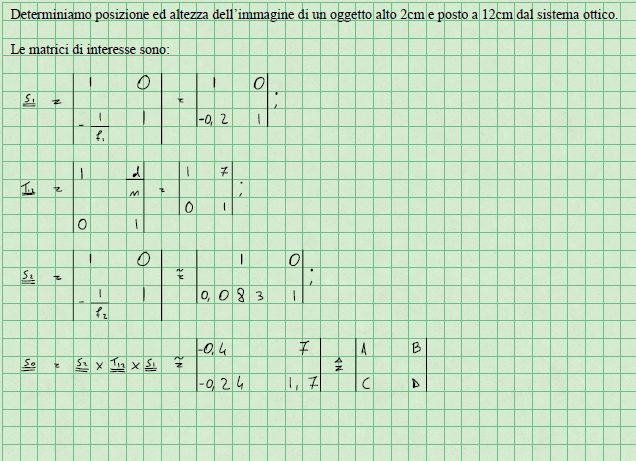 Determiniamo posizione ed altezza dell'immagine di un oggetto alto 2cm e posto a 12cm dal sistema ottico.
Le matrici di interesse sono:
S₁ = | 1 0 | = | 1 0 | ;
| -1/f₁ 1 | | -0,2 1 |
T₁₂ = | 1 d/n | = | 1 7 | ;
| 0 1 | | 0 1 |
S₂ = | 1 0 | ≃ | 1 0 | ;
| -1/f₂ 1 | | 0,083 1 |
S₀ = S₂ × T₁₂ × S₁ ≃ | -0,4 7 | ≜ | A B |
| -0,24 1,7 | | C D |